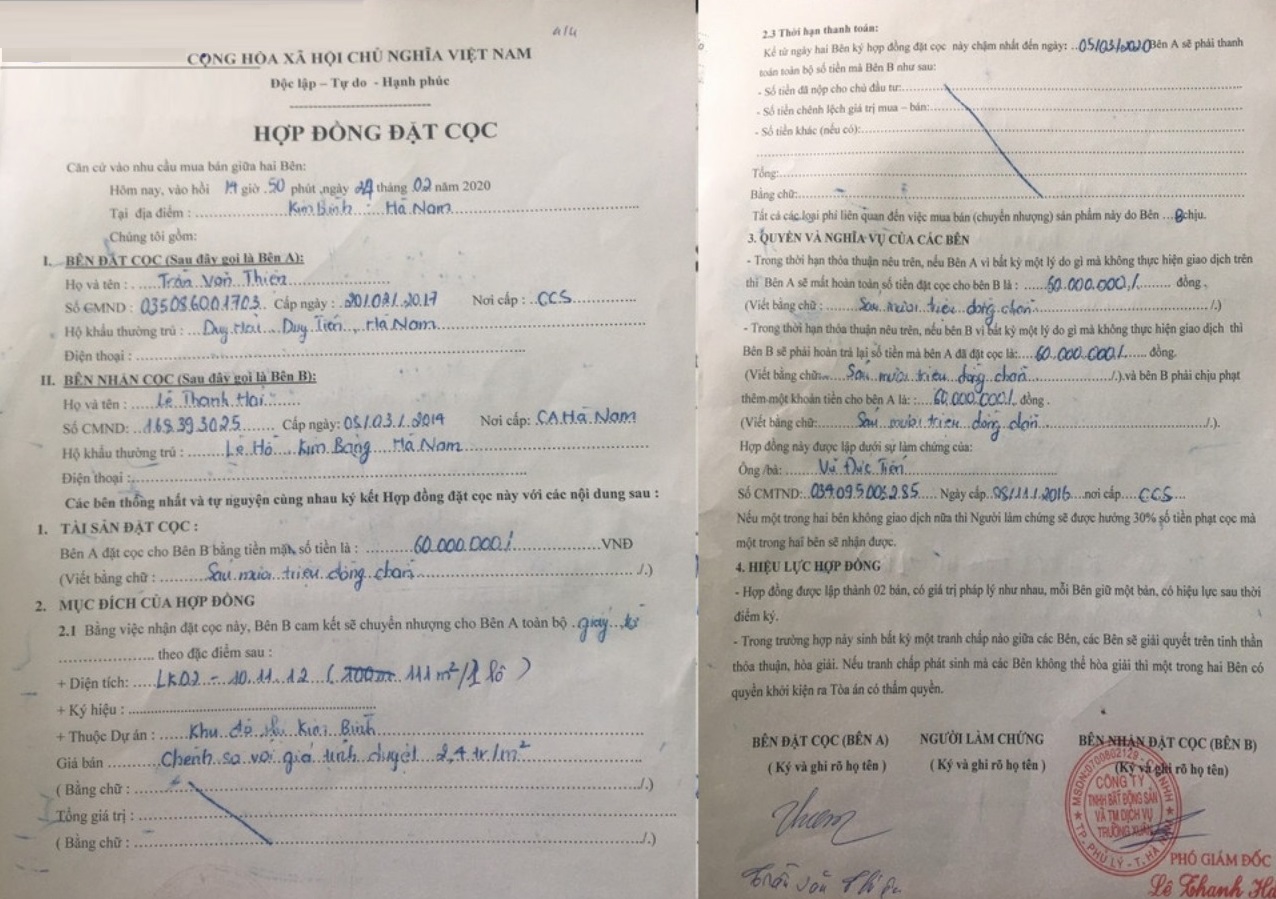 4/4
CỘNG HÒA XÃ HỘI CHỦ NGHĨA VIỆT NAM
Độc lập – Tự do - Hạnh phúc
HỢP ĐỒNG ĐẶT CỌC
Căn cứ vào nhu cầu mua bán giữa hai Bên:
Hôm nay, vào hồi giờ 50 phút, ngày tháng 02 năm 2020
Tại địa điểm : Kim Bình - Hà Nam
Chúng tôi gồm:
I. BÊN ĐẶT CỌC (Sau đây gọi là Bên A):
Họ và tên : Trần Văn Thiện
Số CMND : 035086001703 Cấp ngày : 20/02/2017 Nơi cấp : CCS
Hộ khẩu thường trú : Duy Hải, Duy Tiên, Hà Nam
Điện thoại :
II. BÊN NHẬN CỌC (Sau đây gọi là Bên B):
Họ và tên : Lê Thanh Hải
Số CMND: 168393025 Cấp ngày: 05/03/2014 Nơi cấp: CA Hà Nam
Hộ khẩu thường trú : Lê Hồ, Kim Bảng, Hà Nam
Điện thoại :
Các bên thống nhất và tự nguyện cùng nhau ký kết Hợp đồng đặt cọc này với các nội dung sau :
1. TÀI SẢN ĐẶT CỌC :
Bên A đặt cọc cho Bên B bằng tiền mặt, số tiền là : 60.000.000/ VNĐ
(Viết bằng chữ : Sáu mươi triệu đồng chẵn ./.)
2. MỤC ĐÍCH CỦA HỢP ĐỒNG
2.1 Bằng việc nhận đặt cọc này, Bên B cam kết sẽ chuyển nhượng cho Bên A toàn bộ giấy tờ
theo đặc điểm sau :
+ Diện tích: LK02 - 10.11.12 ( 111 m²/1 lô )
+ Ký hiệu :
+ Thuộc Dự án : Khu đô thị Kim Bình
Giá bán Chênh so với giá tỉnh duyệt 2,4 tr/m²
( Bằng chữ : ./.)
Tổng giá trị :
( Bằng chữ : ./.)
2.3 Thời hạn thanh toán:
Kể từ ngày hai Bên ký hợp đồng đặt cọc này chậm nhất đến ngày: 05/03/2020 Bên A sẽ phải thanh
toán toàn bộ số tiền mà Bên B như sau:
- Số tiền đã nộp cho chủ đầu tư:
- Số tiền chênh lệch giá trị mua – bán:
- Số tiền khác (nếu có):
Tổng:
Bằng chữ:
Tất cả các loại phí liên quan đến việc mua bán (chuyển nhượng) sản phẩm này do Bên B chịu.
3. QUYỀN VÀ NGHĨA VỤ CỦA CÁC BÊN
- Trong thời hạn thỏa thuận nêu trên, nếu Bên A vì bất kỳ một lý do gì mà không thực hiện giao dịch trên
thì Bên A sẽ mất hoàn toàn số tiền đặt cọc cho bên B là : 60.000.000/ đồng .
(Viết bằng chữ : Sáu mươi triệu đồng chẵn ./.)
- Trong thời hạn thỏa thuận nêu trên, nếu bên B vì bất kỳ một lý do gì mà không thực hiện giao dịch thì
Bên B sẽ phải hoàn trả lại số tiền mà bên A đã đặt cọc là: 60.000.000/ đồng.
(Viết bằng chữ: Sáu mươi triệu đồng chẵn ./.) và bên B phải chịu phạt
thêm một khoản tiền cho bên A là: : 60.000.000/ đồng .
(Viết bằng chữ: Sáu mươi triệu đồng chẵn ./.).
Hợp đồng này được lập dưới sự làm chứng của:
Ông /bà: Vũ Đức Tiến
Số CMTND: 034095005285 Ngày cấp 25/11/2016 nơi cấp CCS
Nếu một trong hai bên không giao dịch nữa thì Người làm chứng sẽ được hưởng 30% số tiền phạt cọc mà
một trong hai bên sẽ nhận được.
4. HIỆU LỰC HỢP ĐỒNG
- Hợp đồng được lập thành 02 bản, có giá trị pháp lý như nhau, mỗi Bên giữ một bản, có hiệu lực sau thời
điểm ký.
- Trong trường hợp nảy sinh bất kỳ một tranh chấp nào giữa các Bên, các Bên sẽ giải quyết trên tinh thần
thỏa thuận, hòa giải. Nếu tranh chấp phát sinh mà các Bên không thể hòa giải thì một trong hai Bên có
quyền khởi kiện ra Tòa án có thẩm quyền.
BÊN ĐẶT CỌC (BÊN A) NGƯỜI LÀM CHỨNG BÊN NHẬN ĐẶT CỌC (BÊN B)
( Ký và ghi rõ họ tên ) ( Ký và ghi rõ họ tên ) (Ký và ghi rõ họ tên)
MSDN:0700802129
CÔNG TY
TNHH BẤT ĐỘNG SẢN
VÀ TM DỊCH VỤ
TRƯỜNG XUÂN
TP. PHỦ LÝ - T. HÀ NAM
PHÓ GIÁM ĐỐC
Trần Văn Thiện
Lê Thanh Hả